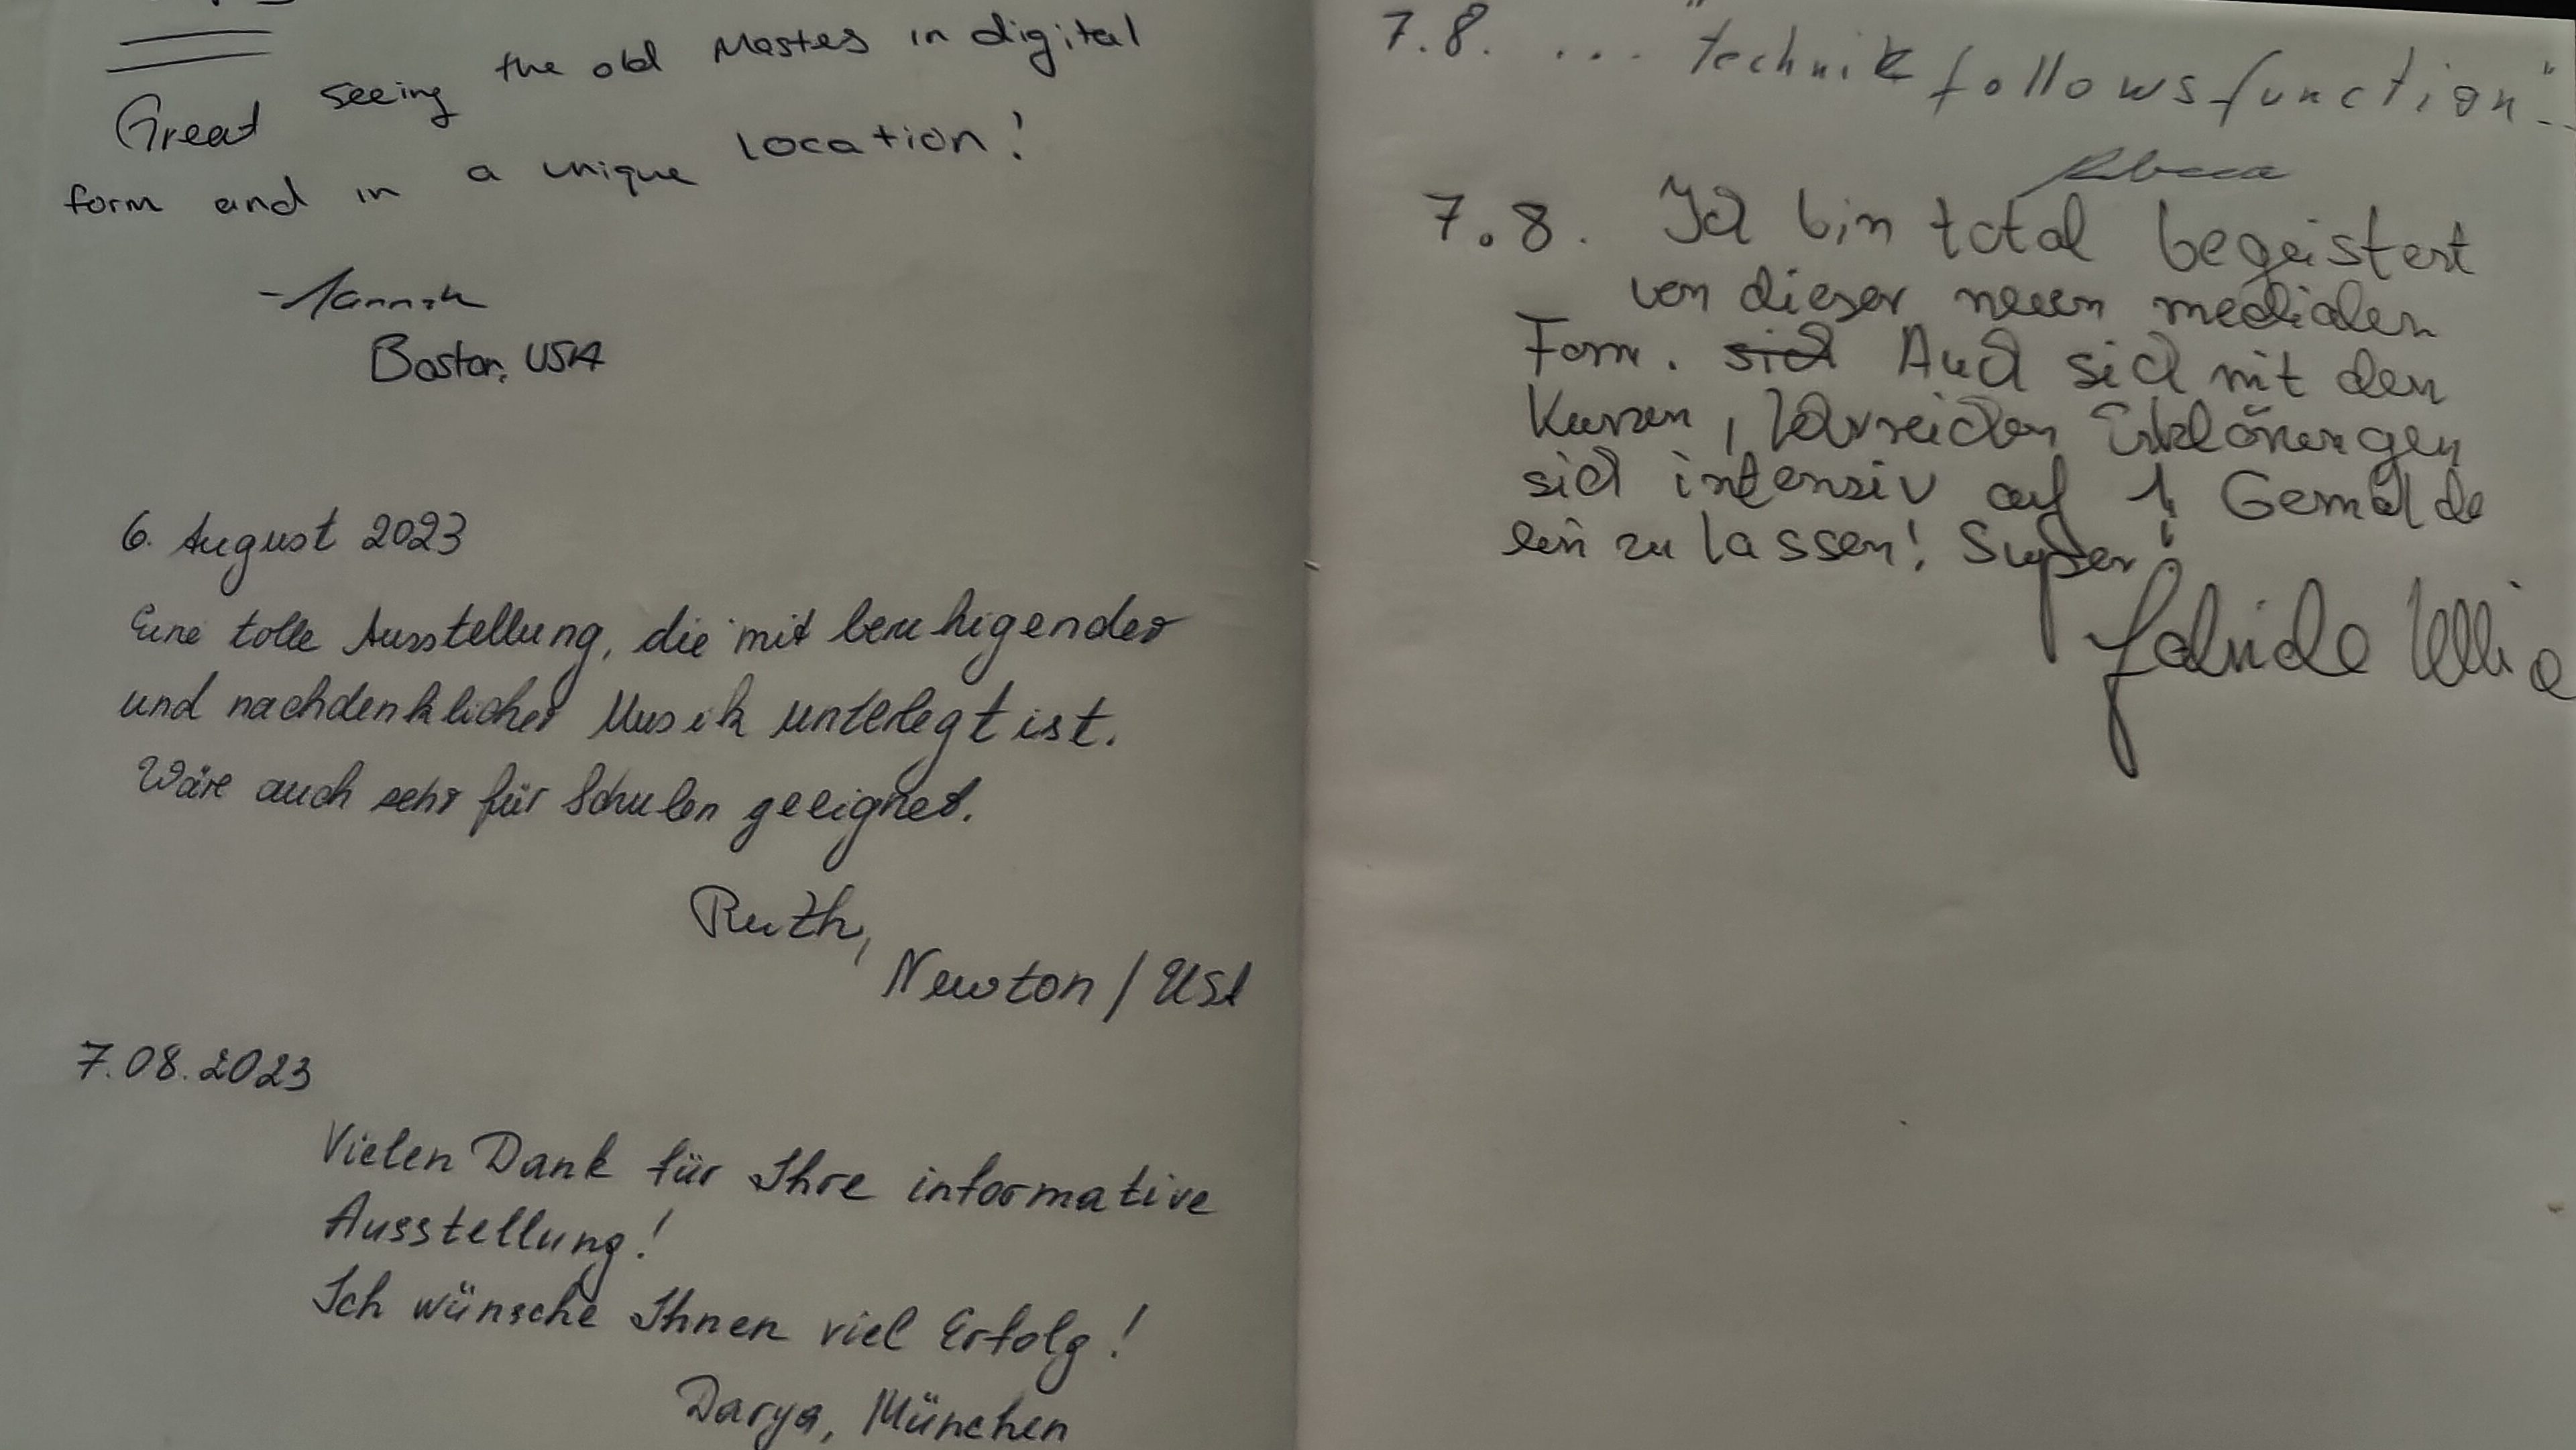 Great seeing the old Mastes in digital
form and in a unique location!
- Yannick
Boston, USA
6. August 2023
Eine tolle Ausstellung, die mit beruhigender
und nachdenklicher Musik unterlegt ist.
Wäre auch sehr für Schulen geeignet.
Ruth,
Newton / USA
7.08.2023
Vielen Dank für Ihre informative
Ausstellung!
Ich wünsche Ihnen viel Erfolg!
Darya, München
7.8. ... "Technik follows function"..
7.8. Ich bin total begeistert
von dieser neuen medialen
Form. sich Auch sich mit den
Kurzen, lehrreichen Erklärungen
sich intensiv auf 1 Gemälde
ein zu lassen! Super!